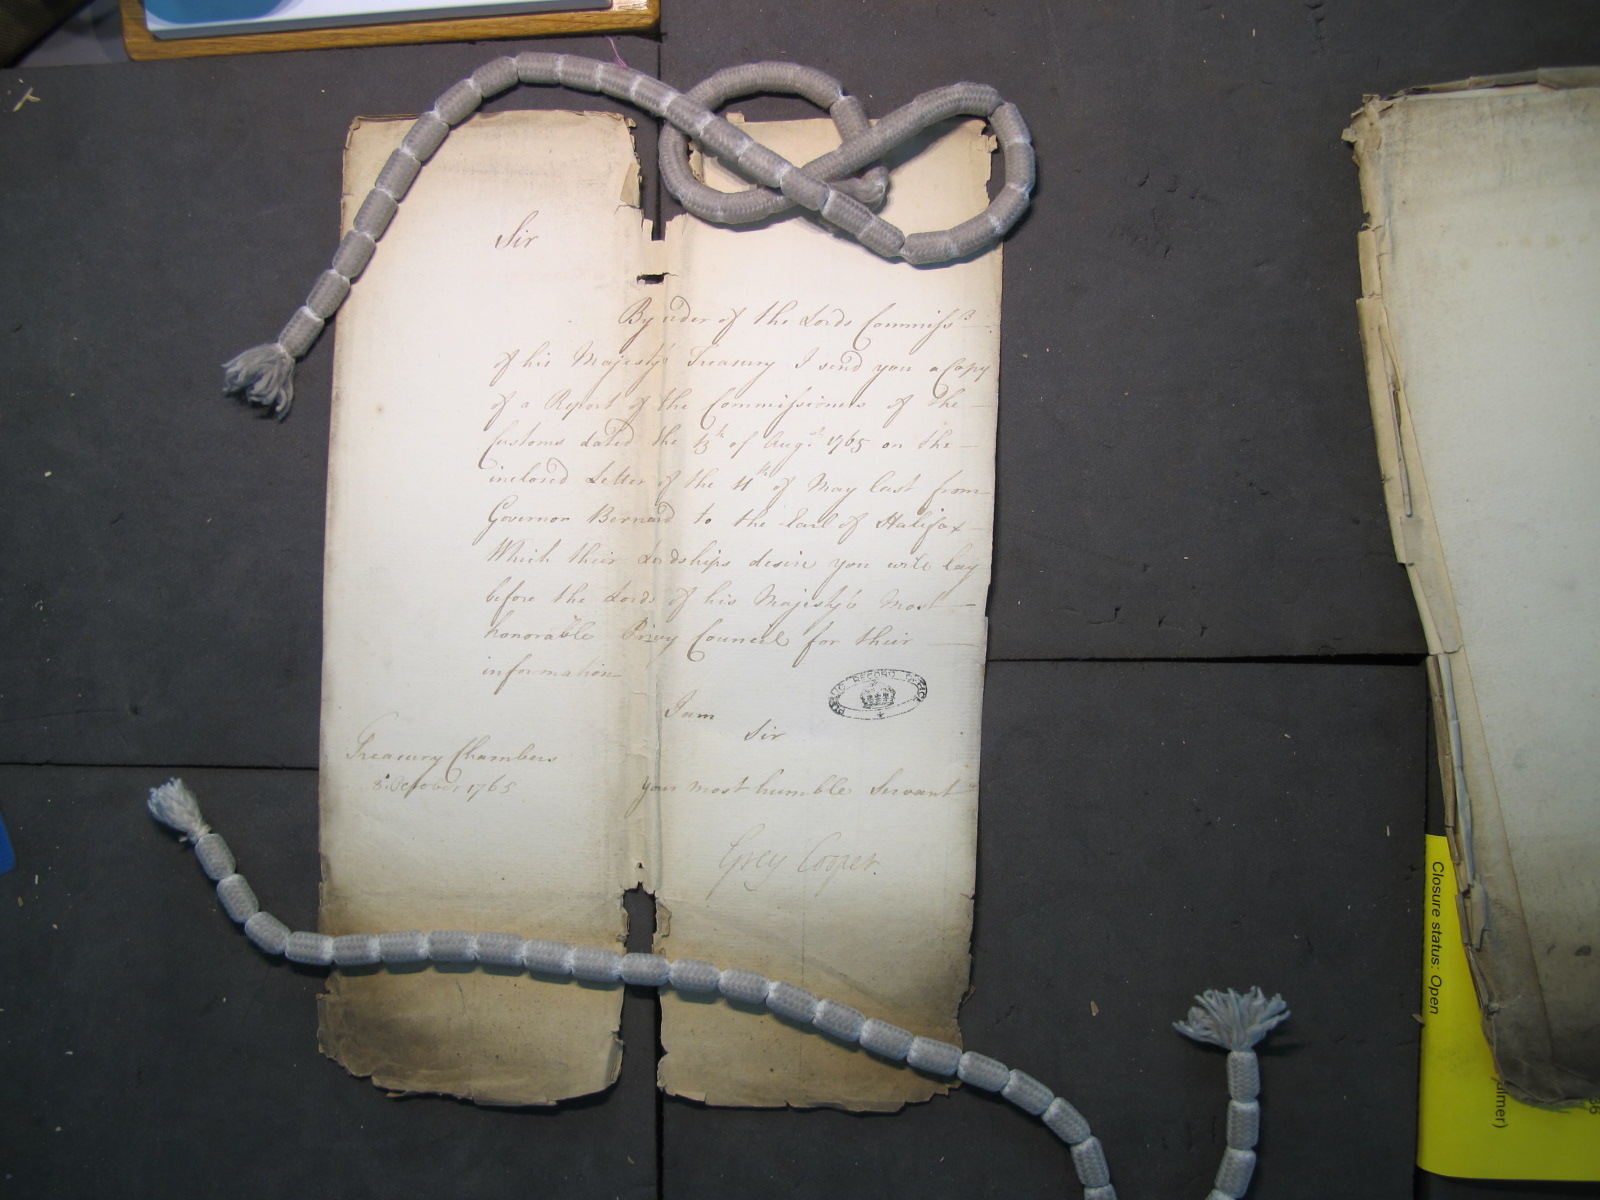 Sir
By order of the Lords Commiss.rs
of his Majesty's Treasury I send you a Copy
of a Report of the Commissioners of the
Customs dated the 13th of Augst 1765 on the
inclosed Letter of the 11th of May last from
Governor Bernard to the Earl of Halifax
Which their Lordships desire you will lay
before the Lords of his Majesty's Most
honorable Privy Council for their
information
I am
Sir
Treasury Chambers
October 1765
your most humble Servant
Grey Cooper.
PUBLIC RECORD OFFICE
Closure status: Open
ulmer)